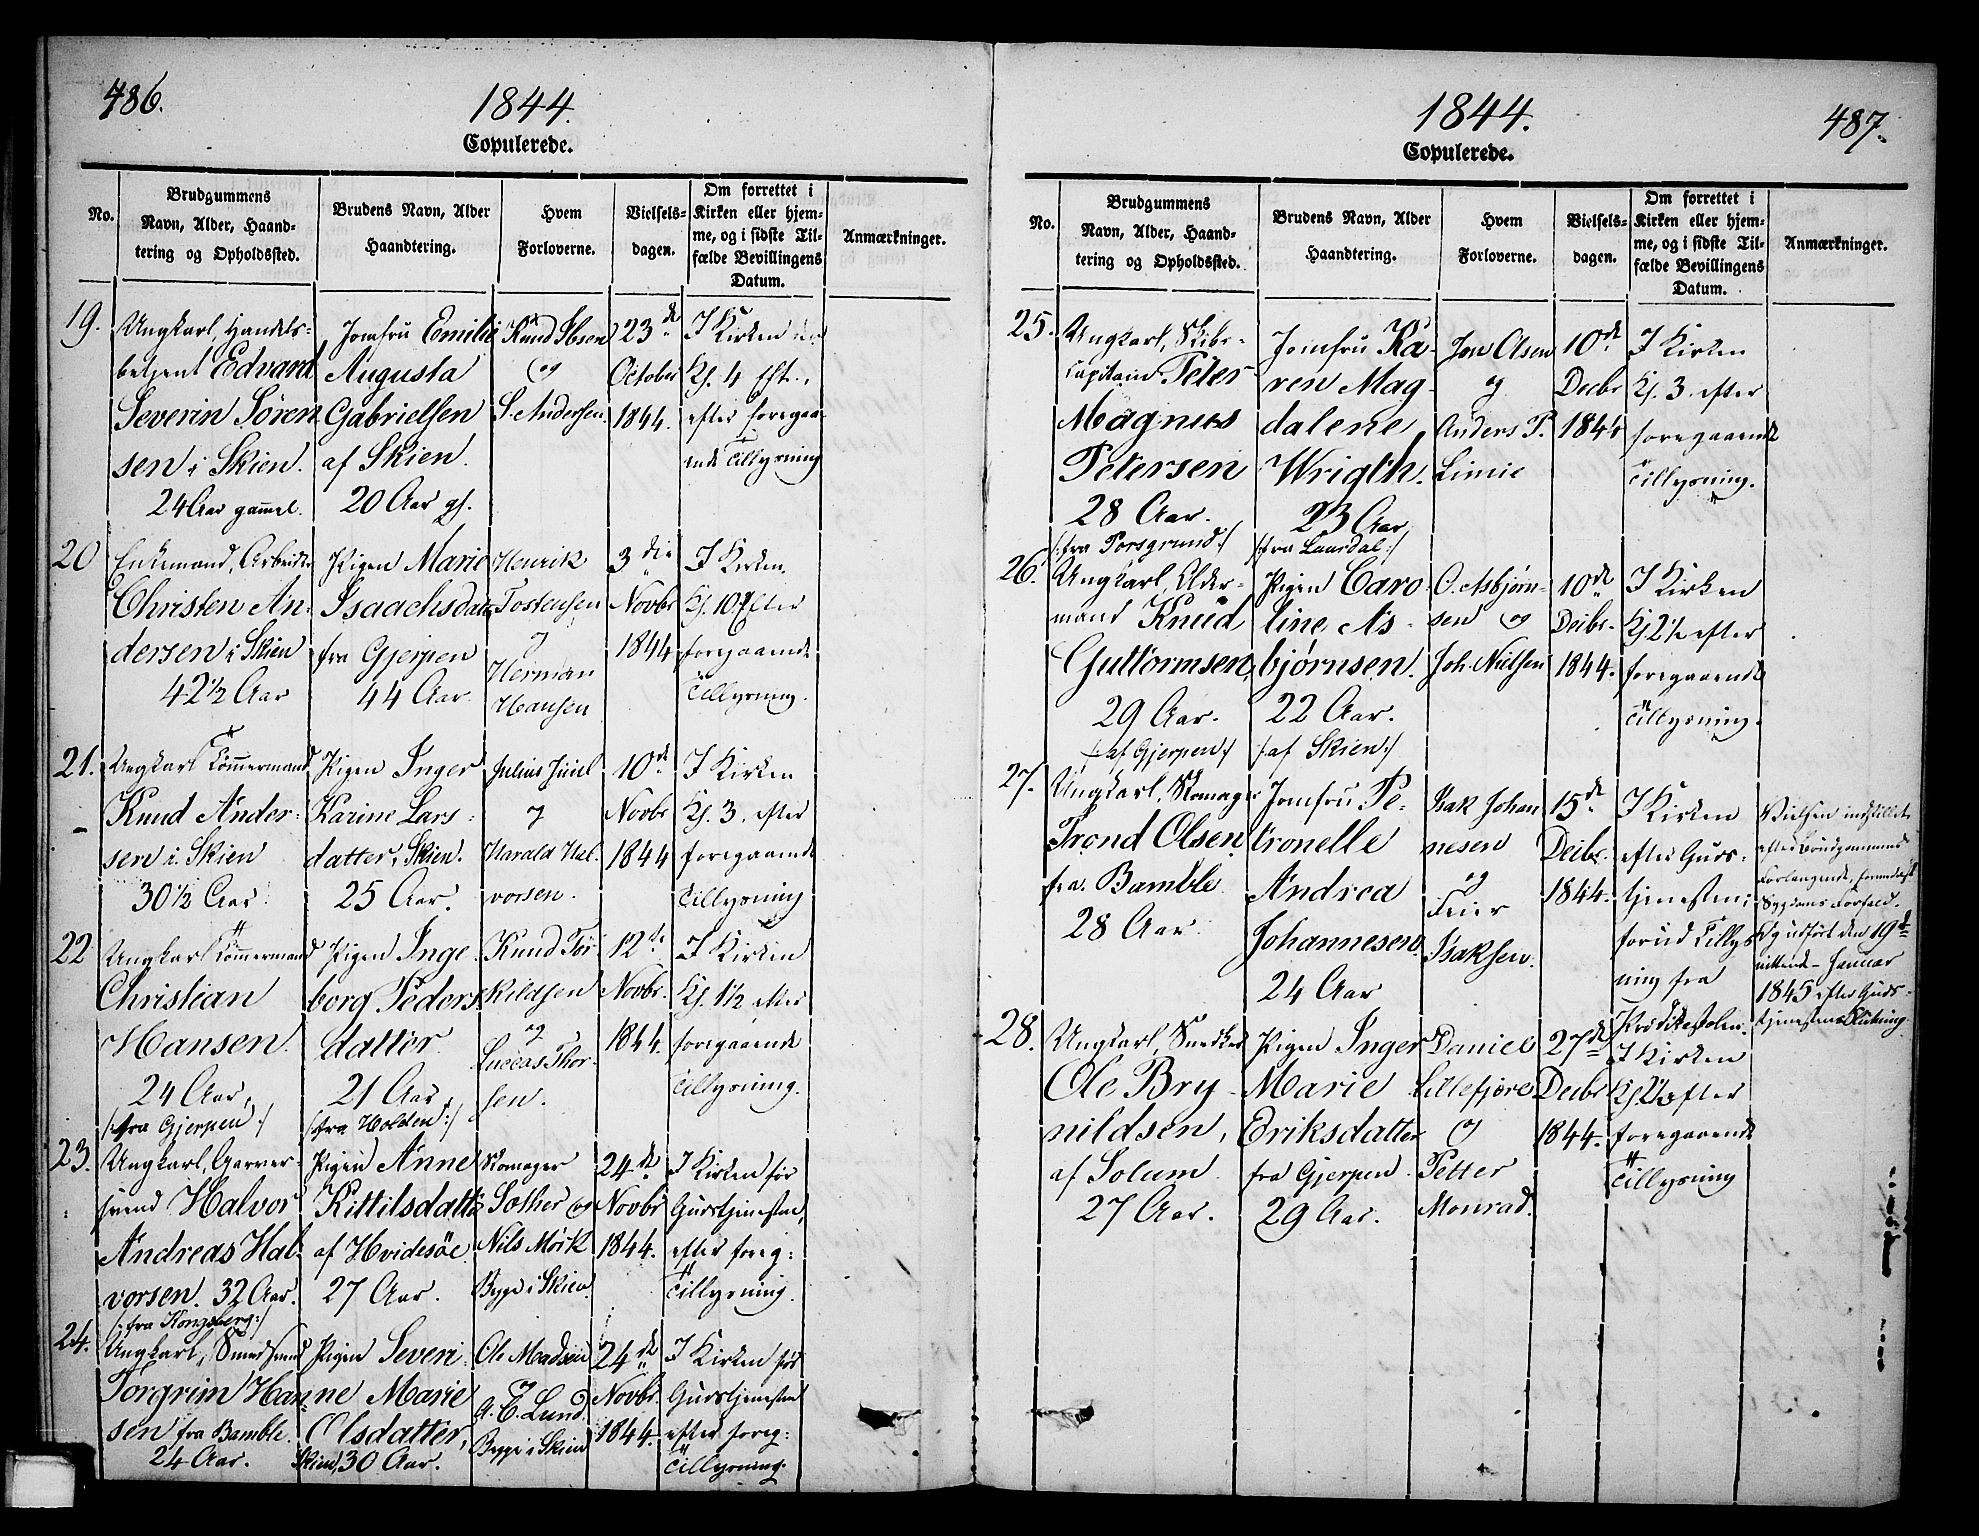 486.
1844.
Copulerede.
No.
Brudgummens
Navn, Alder, Haand-
tering og Opholdssted.
Brudens Navn, Alder
Haandtering.
Hvem
Forloverne.
Vielsels-
dagen.
Om forrettet i
Kirken eller hjem-
me, og i sidste Til-
fælde Bevillingens
Datum.
Anmærkninger.
19.
Ungkarl, Handels-
betjent Edvard
Severin Sören
sen i Skien.
24 Aar gammel.
Jomfru Emilie
Augusta
Gabrielsen
af Skien.
20 Aar gl.
Knud Ibsen
og
S. Andersen.
23de
October
1844.
I Kirken
Kl. 4 Eft.,
efter foregaa-
ende Tillysning
20
Enkemand, Arbeider
Christen An-
dersen i Skien
42½ Aar
Pigen Marie
Isaachsdatr
fra Gjerpen
44 Aar
Henrik
Tostensen
og
Herman
Hansen
3die
Novbr
1844
I Kirken
Kl. 10 Efter
foregaaende
Tillysning.
21.
Ungkarl Tömmermand
Knud Ander-
sen i Skien
30½ Aar.
Pigen Inger
Karine Lars-
datter, Skien.
25 Aar.
Julius Juul
og
Harald Hal-
vorsen.
10de
Novbr
1844
I Kirken
Kl. 3, efter
foregaaende
Tillysning
22
Ungkarl Tömmermand
Christian
Hansen.
24 Aar,
/:fra Gjerpen:/
Pigen Inge
borg Peders
datter
21 Aar
/:fra Holden:/
Knud Tor
kildsen
og
Luccas Thor-
sen.
12te
Novbr.
1844.
I Kirken
Kl. 1½ efter
foregaaende
Tillysning.
23.
Ungkarl, Garver-
svend Halvor
Andreas Hal-
vorsen. 32 Aar.
/:fra Kongsberg:/
Pigen Anne
Kittilsdatter
af Hvidesöe
27 Aar.
Skomager
Sother og
Nils Mörk
Begge i Skien
24de
Novbr
1844.
I Kirken för
Gudstjenesten,
efter foreg:
Tillysning.
24.
Ungkarl, Smedsvend
Torgrim Han-
sen fra Bamble.
24 Aar.
Pigen Severi-
ne Marie
Olsdatter,
Skien, 30 Aar.
Ole Madsen
og
A. C. Lund.
Begge i Skien
24de
Novbr
1844.
I Kirken för
Gudstjenesten
efter foreg:
Tillysning.
1844.
487.
Copulerede.
No.
Brudgummens
Navn, Alder, Haand-
tering og Opholdssted.
Brudens Navn, Alder
Haandtering.
Hvem
Forloverne.
Vielsels-
dagen.
Om forrettet i
Kirken eller hjem-
me, og i sidste Til-
fælde Bevillingens
Datum.
Anmærkninger.
25.
Ungkarl, Skibs-
capitain Peter
Magnus
Petersen
28 Aar.
/:fra Porsgrund:/
Jomfru Ka-
ren Mag-
dalene
Wrigth.
23 Aar
/:fra Laurdal:/
Jon Olsen
og
Anders P.
Limie
10de
Decbr
1844
I Kirken
Kl. 3. efter
foregaaende
Tillysning.
26.
Ungkarl, Older-
mand Knud
Guttormsen
29 Aar.
/:af Gjerpen:/
Pigen Caro
line As-
bjørnsen.
22 Aar.
/:af Skien:/
O. Asbjørn-
sen og
Joh. Nielsen
10de
Decbr.
1844.
I Kirken
Kl 2½ efter
foregaaende
Tillysning.
27.
Ungkarl, Skomager
Trond Olsen
fra Bamble
28 Aar.
Jomfru Pe-
tronelle
Andrea
Johannesen.
24 Aar
Isak Johan
nesen
og
Feier
Isaksen.
15de
Decbr.
1844.
I Kirken
efter Guds-
tjenesten;
forud Tillys
ning fra
Prædikestolen.
Vielsen indstillet
efter Brudgommens
Forlangende, formedelst
Sygdoms Forfald.
Og udfört den 19de
nittende Januar
1845 efter Guds-
tjenestens Slutning.
28.
Ungkarl, Snedker
Ole Bry-
nildsen,
af Solum
27 Aar.
Pigen Inger
Marie
Eriksdatter
fra Gjerpen
29 Aar.
Daniel
Lillefjøre
og
Petter
Monrad.
27de
Decbr
1844.
I Kirken
efter
foregaaende
Tillysning